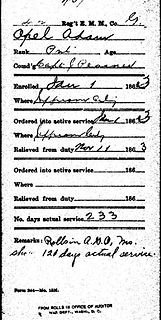 42 Reg't E. M. M., Co. G.
Opel Adam
Rank Pvt. Age
Com'd'g Capt J
Enrolled Jan 1 1863
Where Jefferson City
Ordered into active service 1 1863
Where Jefferson City
Relieved from duty Nov 11 1863
Ordered into active service 186
Where
Relieved from duty 186
No. days actual service 233
Remarks: Rolls in A.G.O., Mo.
sho. 128 days actual service.
FROM ROLLS IN OFFICE OF AUDITOR
WAR DEP'T., WASH., D. C.